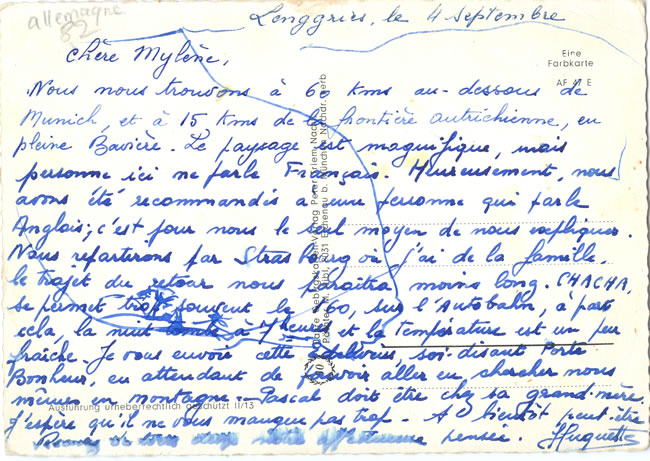 allemagne
82
Lenggries, le 4 Septembre
chère Mylène,
Eine
Farbkarte
AF 17 E
Nous nous trouvons à 60 Kms au-dessous de
Munich, et à 15 Kms de la frontière autrichienne, en
pleine Bavière. Le paysage est magnifique, mais
personne ici ne parle Français. Heureusement, nous
avons été recommandés à une personne qui parle
Anglais; c'est pour nous le seul moyen de nous expliquer.
Nous repartirons par Strasbourg où j'ai de la famille.
le trajet du retour nous paraîtra moins long. CHACHA,
se permet trop souvent le 60, sur l'Autobahn, à part
cela la nuit tombe à 7 heures et la température est un peu
fraîche. Je vous envoie cette edelweiss, soi-disant Porte
Bonheur, en attendant de pouvoir aller en chercher nous
mêmes en montagne. Pascal doit être chez sa grand-mère.
Ausführung urheberrechtlich geschützt II/13
j'espère qu'il ne vous manque pas trop. A bientôt peut-être
pensée. Huguette